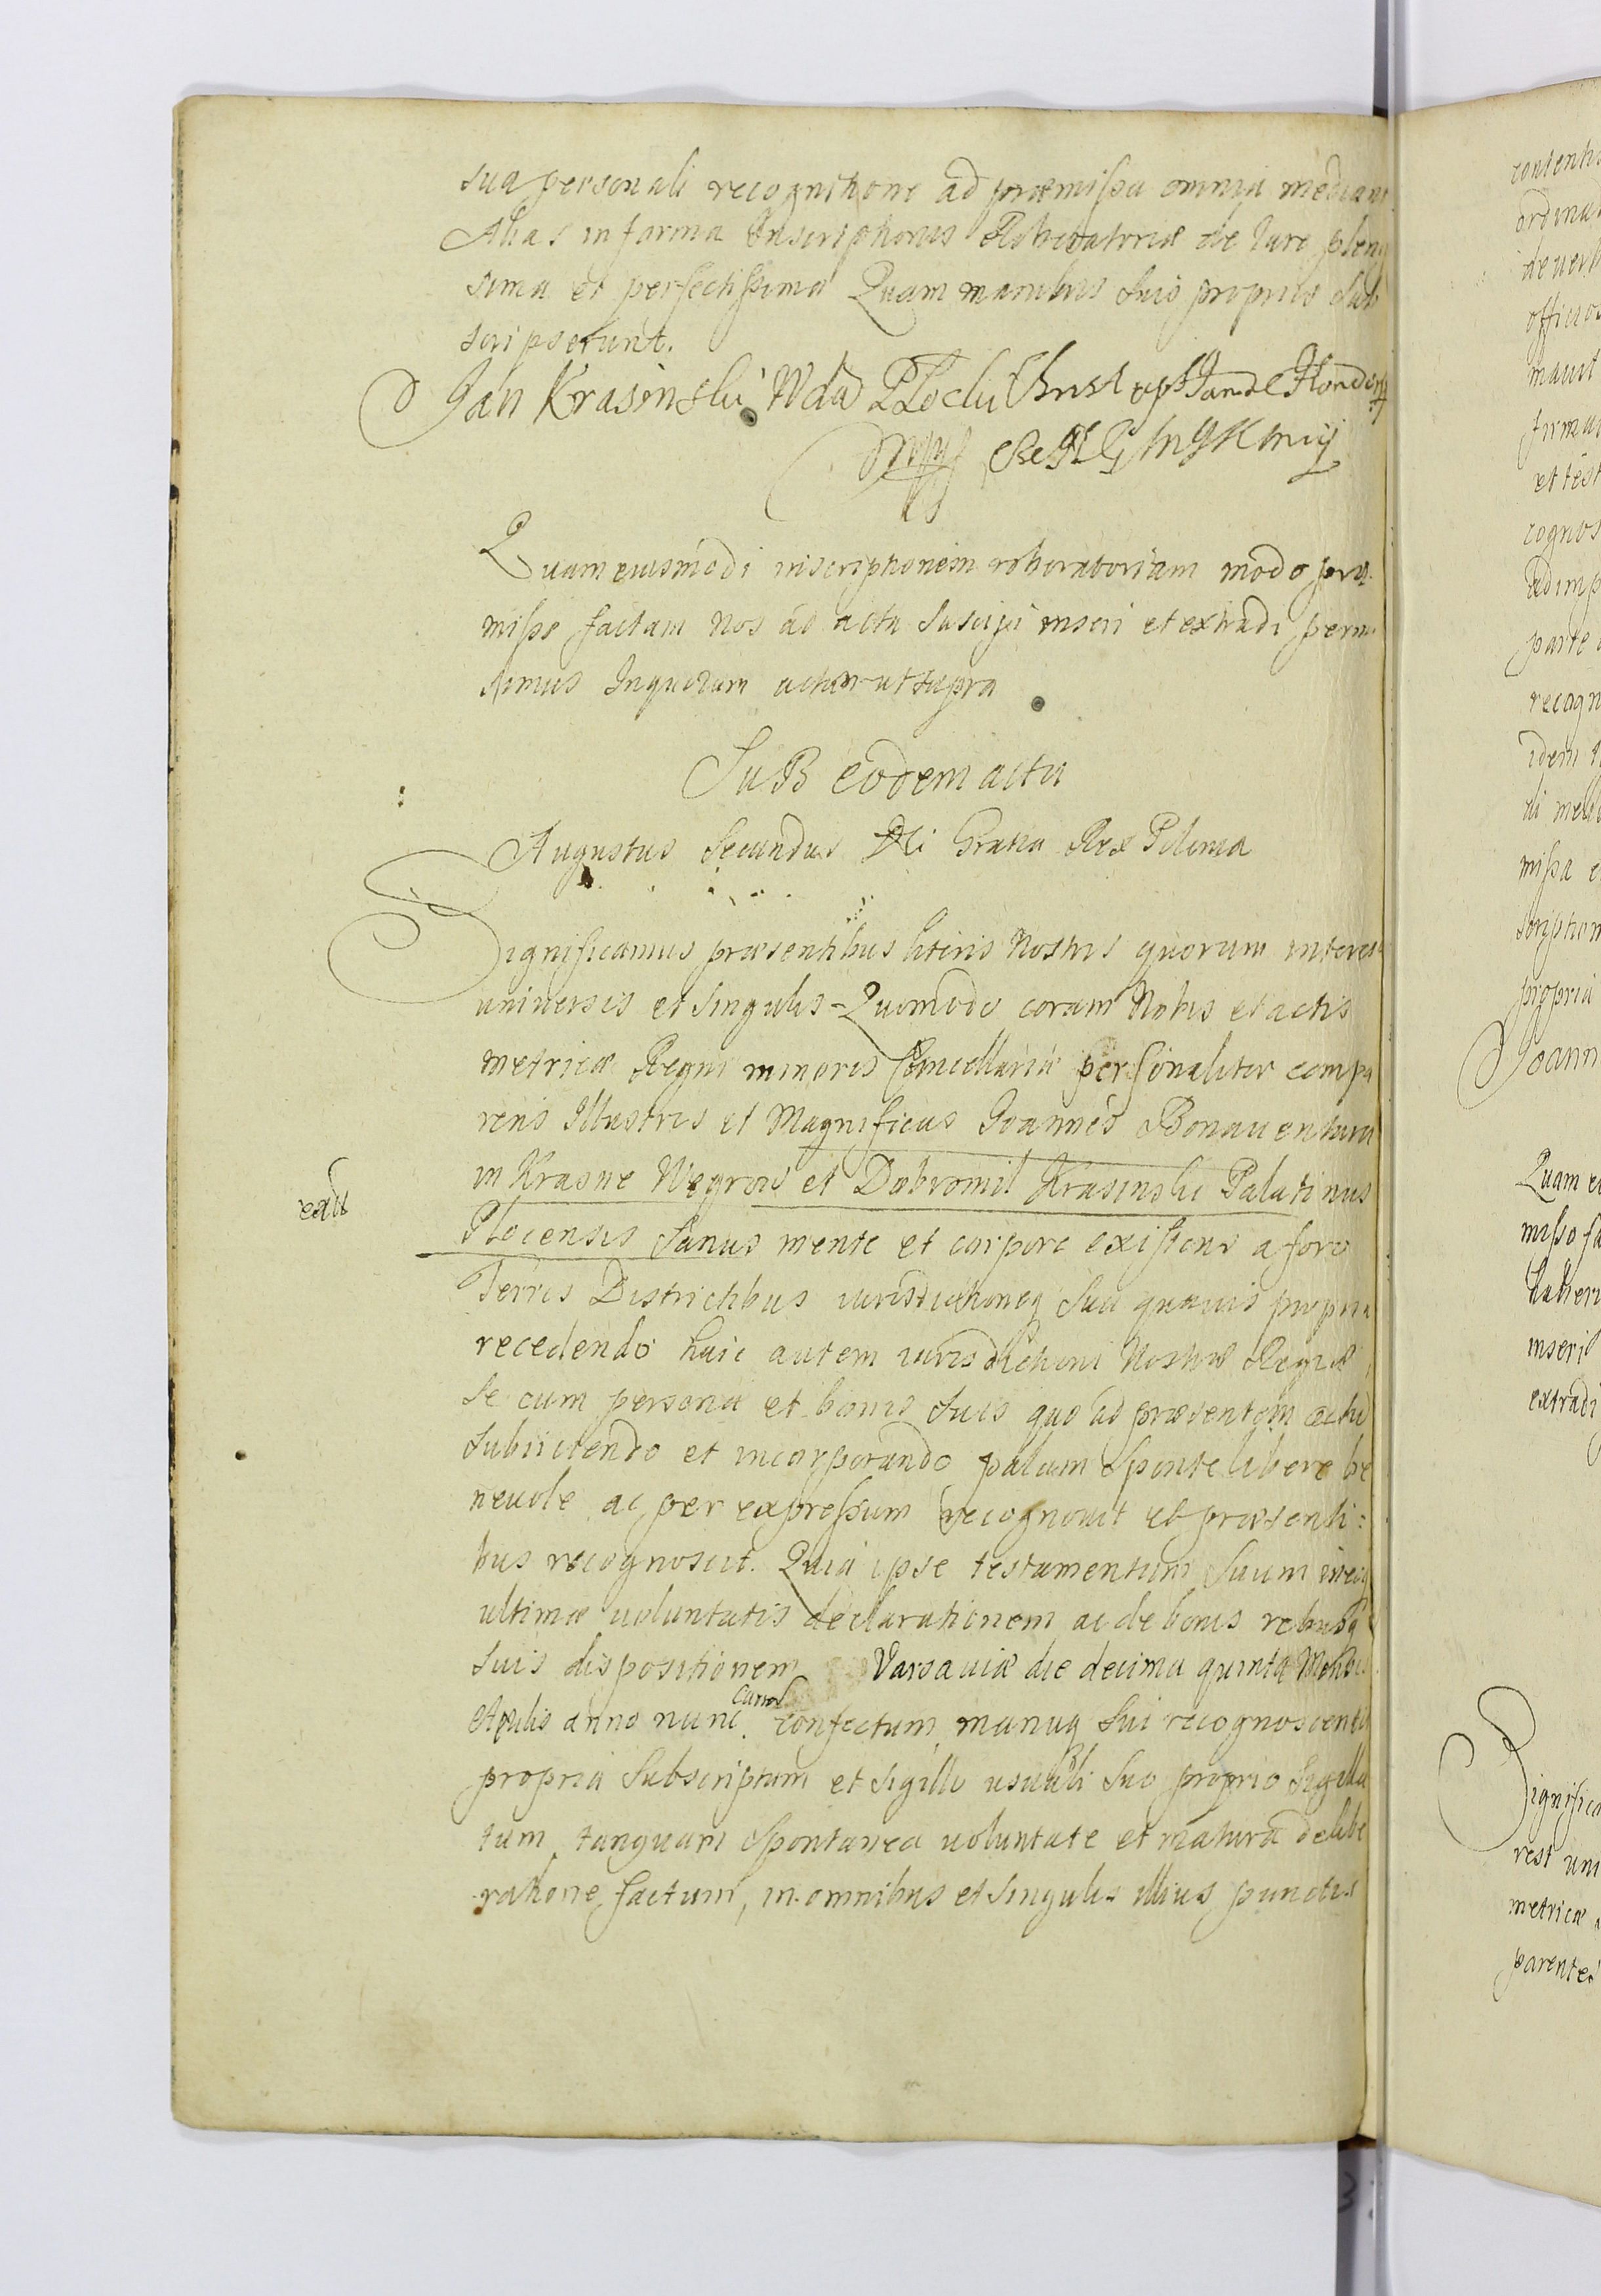 sua personali recognitione ad præmissa omnia median
Alias in forma Inscriptionis Roboratoriæ de Iure pleni
sima et perfectissima Quam manibus suis propriis sub
scripserunt.
Jan Krasinski Wda PŁocki
Quam eiusmodi inscriptionem roboratoriam modo præ
misso factam Nos ad acta suscipi inseri et extradi permi
simus Inquorum actum ut supra
SuB eodem actu
Augustus Secundus Dei Gratia Rex Poloniæ
Significamus præsentibus literis Nostris quorum interest
universis et singulis Quomodo coram Nobis et actis
metricæ Regni minoris Cancellariæ personaliter compa
rens Illustris et Magnificus Joannes Bonauentura
in Krasne Węgrow et Dobromil Krasinski Palatinus
Plocensis Sanus mente et corpore existens a foro
Terris Districtibus iurisdictioneq sua quauis propria
recedendo huic autem iurisdictioni Nostræ Regiæ
se cum persona et bonis suis quo ad præsentem actu
subiiciendo et incorporando palam sponte libere be
neuole ac per expressum recognouit et præsenti:
bus recognoscit. Quia ipse testamentum suum
ultimæ uoluntatis declarationem ac de bonis rebusq
suis dispositionem Varsauiæ die decima quinta Mensis
Aprilis anno nunc curren confectum manuq sui recognoscentis
propria subscriptum et sigillo usuali suo proprio sigilla
tum, tanquam spontanea uoluntate et matura delibe
ratione factum, in omnibus et singulis illius punctis
extt
contenti
ordina
de uerb
officio
mauit
firma
et test
cognos
ad imp
parte
recogn
idem
missa e
scription
propria
Joann
Quam e
misso fa
inseri
extradi
Significa
rest uni
metricæ
parentes